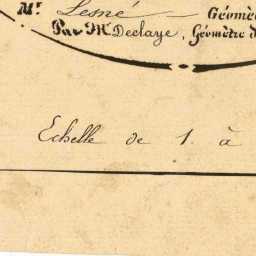 Mr. Lesné — Géomè
Par Mr. Declaye, Géomètre d
Echelle de 1. à